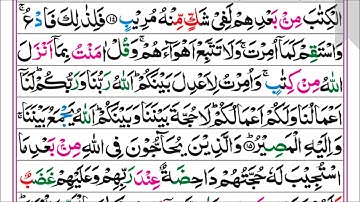 الْكِتٰبَ مِنْۢ بَعْدِهِمْ لَفِیْ شَكٍّ مِّنْهُ مُرِیْبٍ ۝۱۴ فَلِذٰلِكَ فَادْعُ ۚ
وَاسْتَقِمْ كَمَاۤ اُمِرْتَ ۚ وَلَا تَتَّبِعْ اَهْوَآءَهُمْ ۚ وَقُلْ اٰمَنْتُ بِمَاۤ اَنْزَلَ
اللّٰهُ مِنْ كِتٰبٍ ۚ وَاُمِرْتُ لِاَعْدِلَ بَیْنَكُمْ ؕ اَللّٰهُ رَبُّنَا وَرَبُّكُمْ ؕ لَنَاۤ
اَعْمَالُنَا وَلَكُمْ اَعْمَالُكُمْ ؕ لَا حُجَّةَ بَیْنَنَا وَبَیْنَكُمْ ؕ اَللّٰهُ یَجْمَعُ بَیْنَنَا ۚ
وَاِلَیْهِ الْمَصِیْرُ ۝۱۵ وَالَّذِیْنَ یُحَآجُّوْنَ فِی اللّٰهِ مِنْۢ بَعْدِ مَا
اسْتُجِیْبَ لَهٗ حُجَّتُهُمْ دَاحِضَةٌ عِنْدَ رَبِّهِمْ وَعَلَیْهِمْ غَضَبٌ